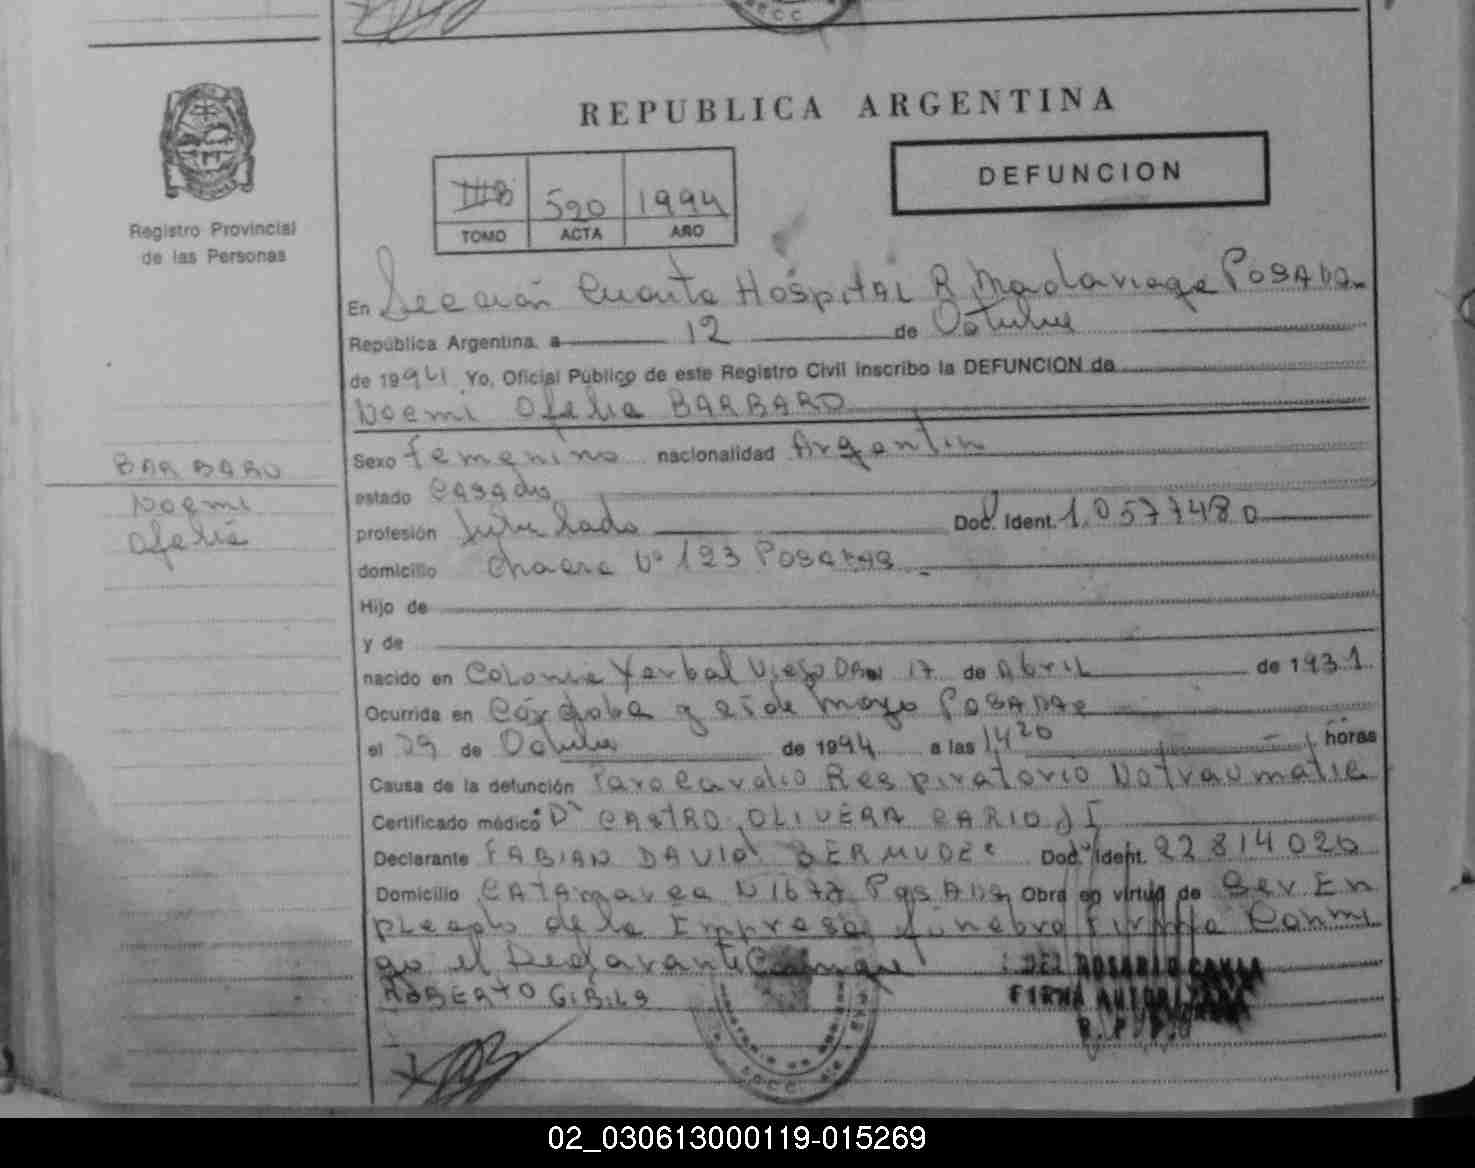 REPUBLICA ARGENTINA
DEFUNCION
590 1994
TOMO ACTA AÑO
Registro Provincial
de las Personas
En Sección Cuarta Hospital R Madariaga POSADA
República Argentina, a 12 de Octubre
de 1994 Yo, Oficial Público de este Registro Civil inscribo la DEFUNCION de
Noemi Ofelia BARBARO
BARBARO
Noemi
Ofelia
Sexo femenino nacionalidad Argentin
estado Casado
profesión Jubilado Doc. Ident. 1.0577480
domicilio Chacra Nº 123 Posadas
Hijo de
y de
nacido en Colonia Yerbal Viejo 17 de Abril de 1931
Ocurrida en Córdoba y 25 de Mayo POSADAS
el 09 de Octubre de 1994 a las 14 20 horas
Causa de la defunción Paro Cardio Respiratorio No traumatic
Certificado médico Dr CASTRO OLIVERA
Declarante FABIAN DAVID BERMUDEZ Doc. Ident. 22814020
Domicilio CATAMARCA N 1677 POSADAS Obra en virtud de Ser Em
pleado de la Empresa fúnebre Firma Conmi
go el Declarante
ROBERTO GIBILS
DEL ROSARIO
FIRMA AUTORIZADA
R.P.P.
02_030613000119-015269